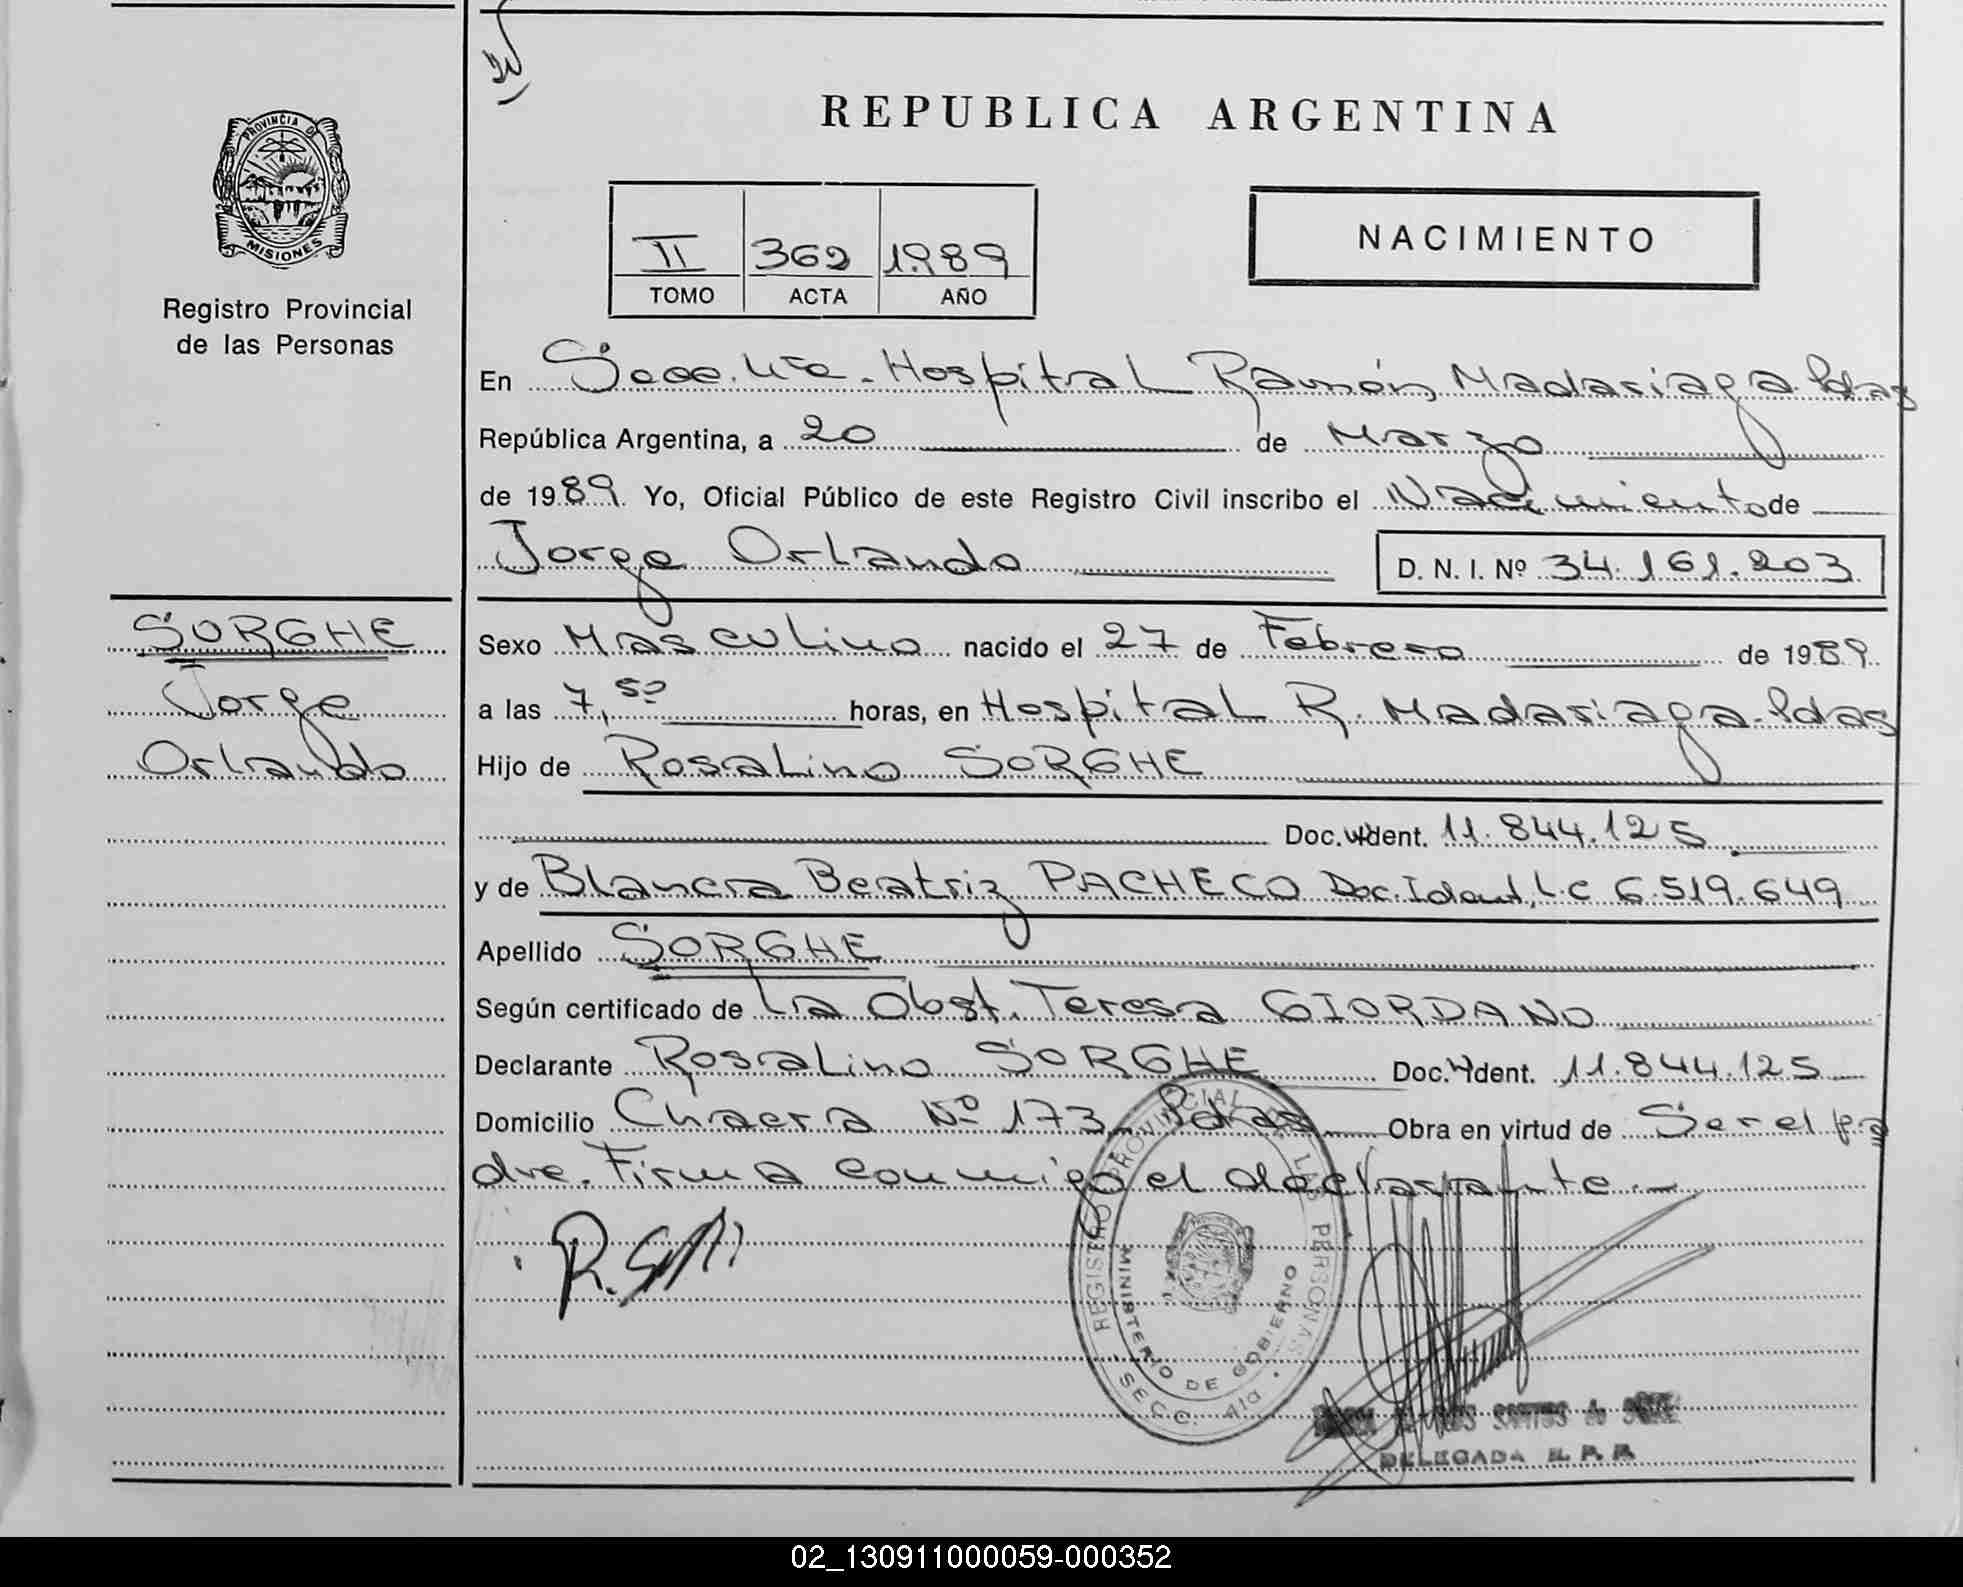 REPUBLICA ARGENTINA
PROVINCIA DE
MISIONES
Registro Provincial
de las Personas
II 362 1989
TOMO ACTA AÑO
NACIMIENTO
En Secc. 4ta. Hospital Ramón Madariaga. Pdas
República Argentina, a 20 de Marzo
de 1989. Yo, Oficial Público de este Registro Civil inscribo el Nacimiento de
Jorge Orlando D. N. I. Nº 34.161.203
SORGHE
Jorge
Orlando
Sexo Masculino nacido el 27 de Febrero de 1989.
a las 7,50 horas, en Hospital R. Madariaga. Pdas
Hijo de Rosalino SORGHE
Doc. Ident. 11.844.125
y de Blanca Beatriz PACHECO Doc. Ident. L.C 6.519.649
Apellido SORGHE
Según certificado de La Obst. Teresa GIORDANO
Declarante Rosalino SORGHE Doc. Ident. 11.844.125
Domicilio Chacra Nº 173, Pdas. Obra en virtud de Ser el pa
dre. Firma conmigo el declarante.-
REGISTRO PROVINCIAL DE LAS PERSONAS
MINISTERIO DE GOBIERNO
SECC. 4ta
DELEGADA R. P. P.
02_130911000059-000352